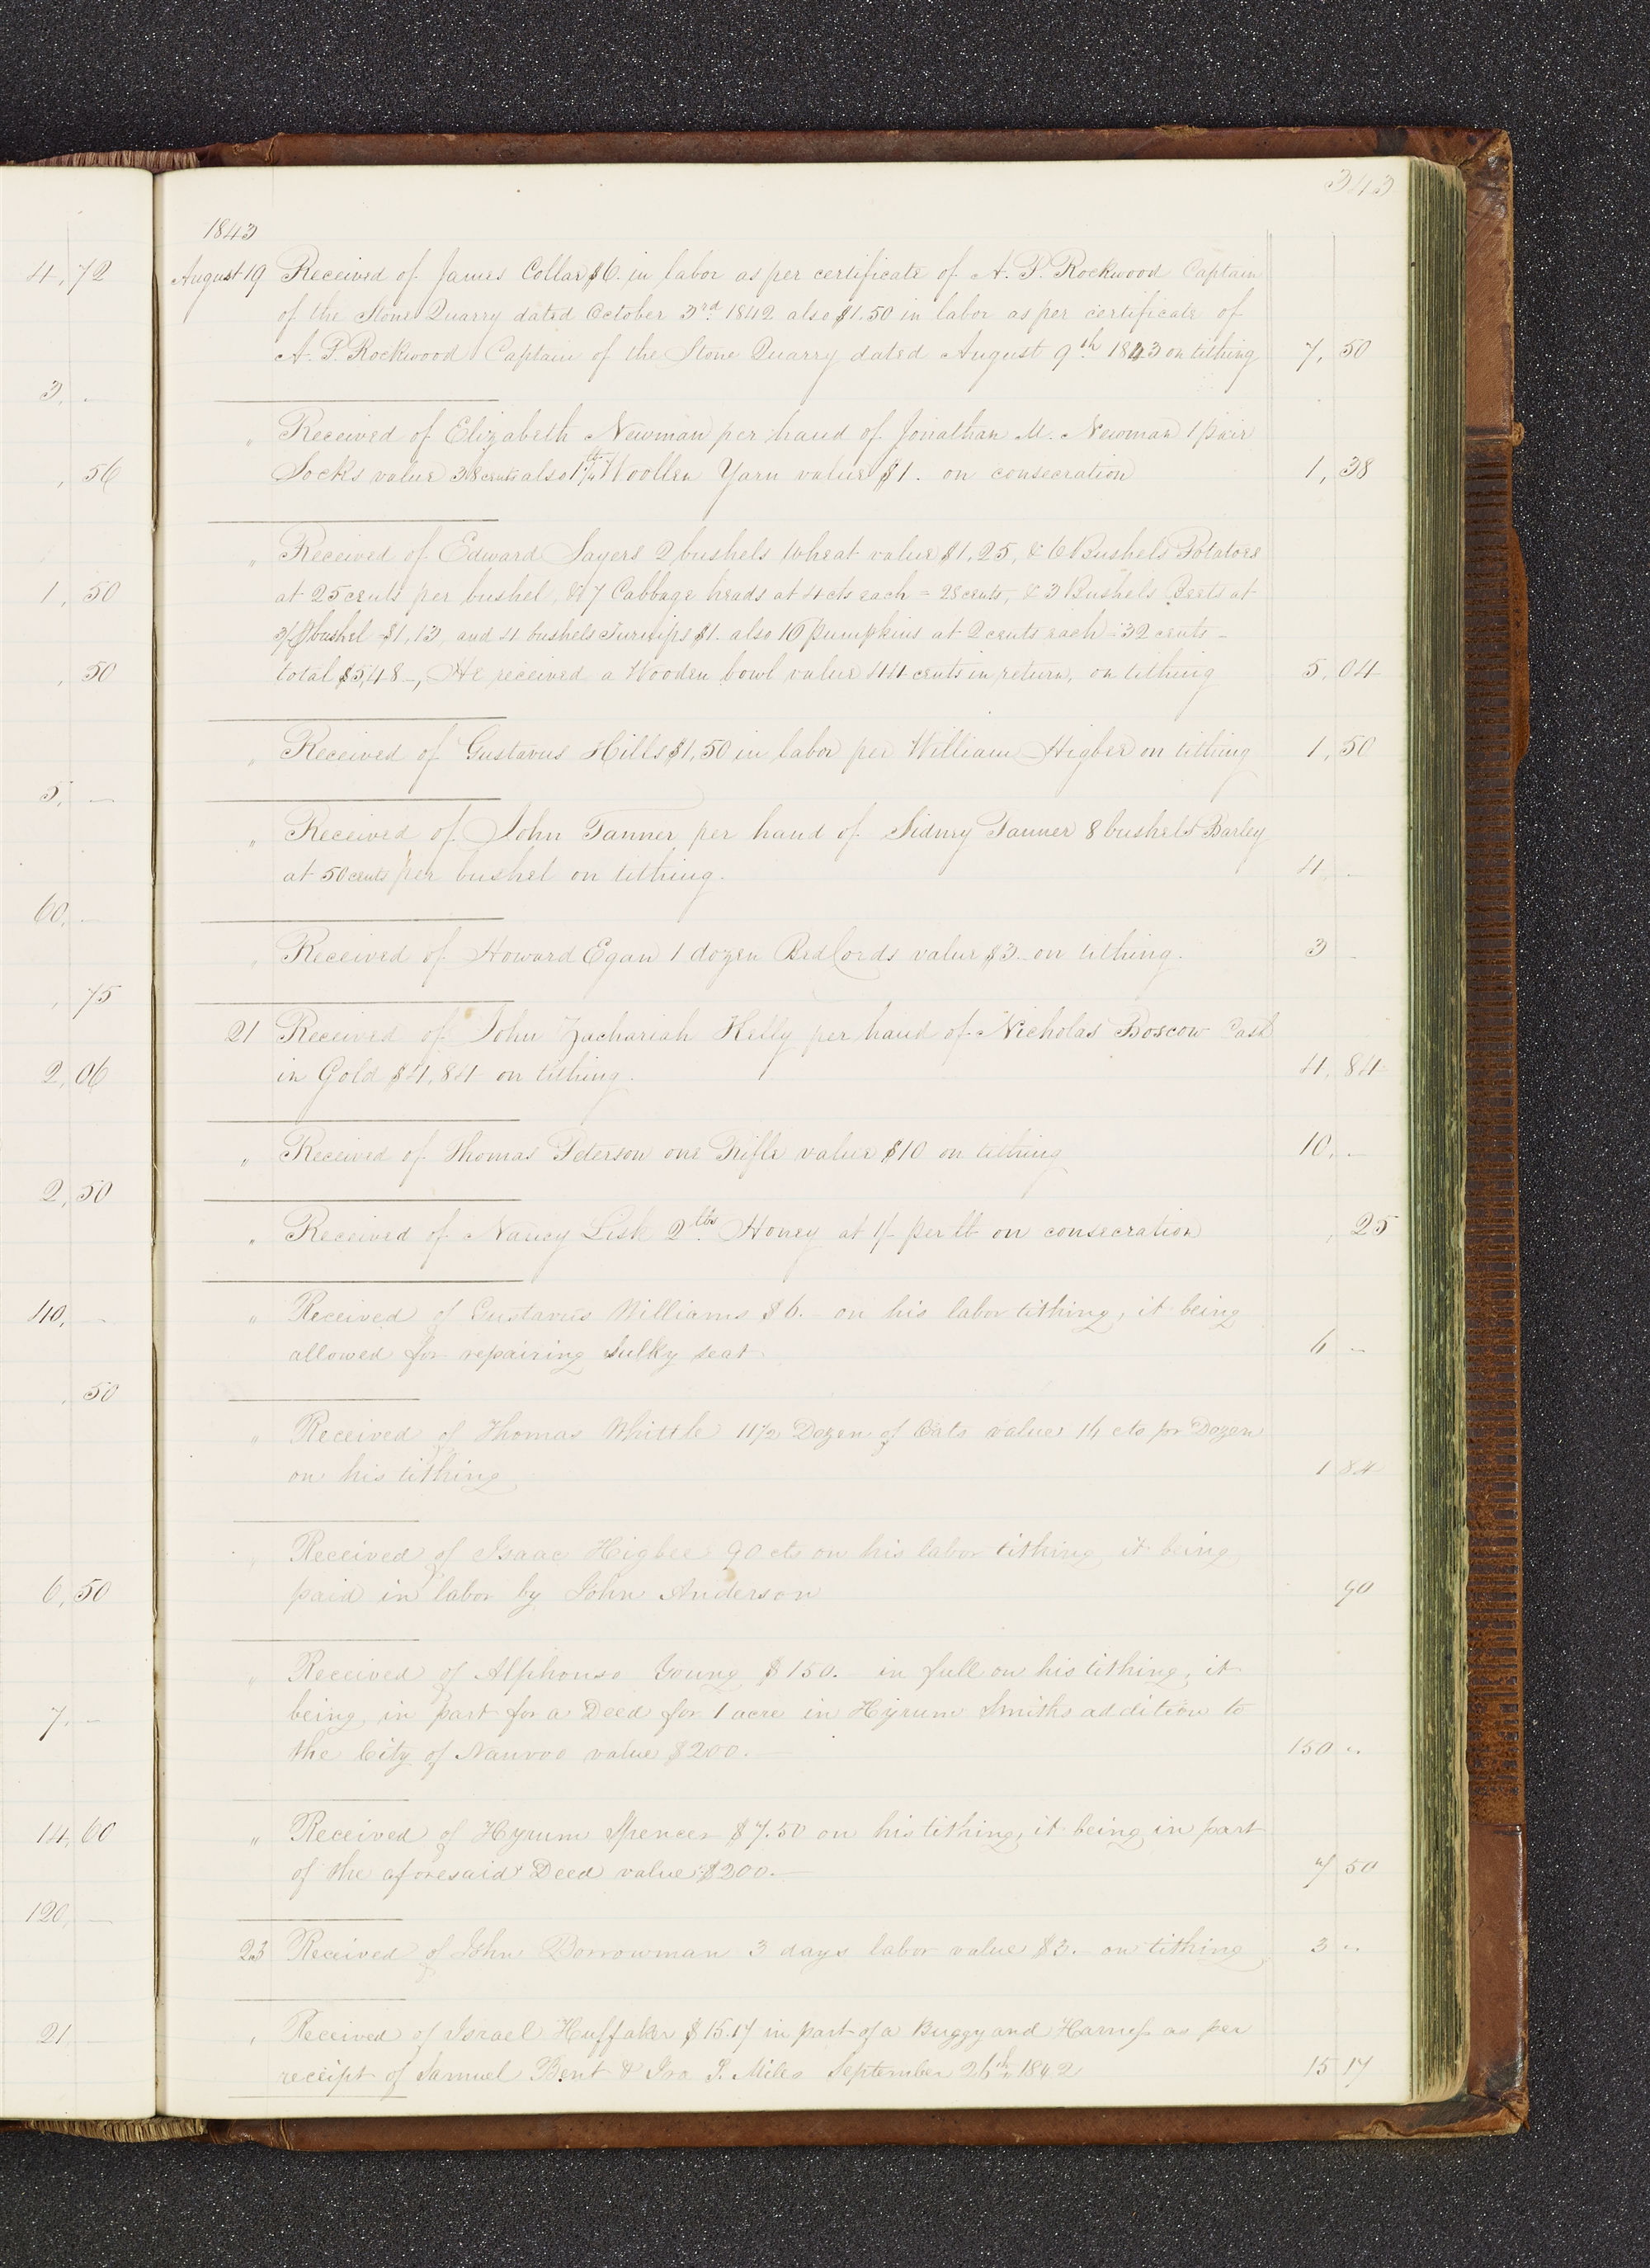 343
1843
August 19 Received of James Collar $6. in labor as per certificate of A. P. Rockwood Captain
of the Stone Quarry dated October 3rd. 1842 also $1.50 in labor as per certificate of
A. P. Rockwood Captain of the Stone Quarry dated August 9th. 1843 on tithing 7, 50
" Received of Elizabeth Newman per hand of Jonathan M. Newman 1 pair
Socks value 38 cents also 1 1/4 lb Woollen Yarn value $1. on consecration 1, 38
" Received of Edward Sayers 2 bushels Wheat value $1,25, & 6 Bushels Potatoes
at 25 cents per bushel, & 7 Cabbage heads at 4 cts each = 28 cents, & 3 Bushels Beets at
3/ bushel $1,13, and 4 bushels Turnips $1. also 16 pumpkins at 2 cents each = 32 cents -
total $5,48 -, He received a Wooden bowl value 44 cents in return, on tithing 5, 04
" Received of Gustavus Hills $1,50 in labor per William Higbee on tithing 1, 50
" Received of John Tanner per hand of Sidney Tanner 8 bushels Barley
at 50 cents per bushel on tithing. 4, -
" Received of Howard Egan 1 dozen Bed Cords value $3 - on tithing. 3 -
21 Received of John Zachariah Kelly per hand of Nicholas Boscow Cash
in Gold $4,84 on tithing. 4, 84
" Received of Thomas Peterson one Rifle value $10 on tithing 10, -
" Received of Nancy Lisk 2 lbs. Honey at 1/- per lb on consecration , 25
" Received of Gustavus Williams $6. on his labor tithing, it being
allowed for repairing Sulky seat 6 -
" Received of Thomas Whittle 11 1/2 Dozen of Oats value 16 cts pr Dozen
on his tithing 1 84
" Received of Isaac Higbee 90 cts on his labor tithing, it being
paid in labor by John Anderson 90
" Received of Alphonso Young $150. in full on his tithing, it
being in part for a Deed for 1 acre in Hyrum Smiths addition to
the City of Nauvoo value $200. 150 "
" Received of Hyrum Spencer $7.50 on his tithing, it being in part
of the aforesaid Deed value $200. 7 50
23 Received of John Borrowman 3 days labor value $3. on tithing 3 "
" Received of Israel Huffaker $15.17 in part of a Buggy and Harness as per
receipt of Samuel Bent & Ira S. Miles September 26th 1842 15 17
4, 72
3, -
, 56
1, 50
, 50
5, -
60, -
, 75
2, 06
2, 50
40, -
, 50
6, 50
7, -
14, 60
120, -
21